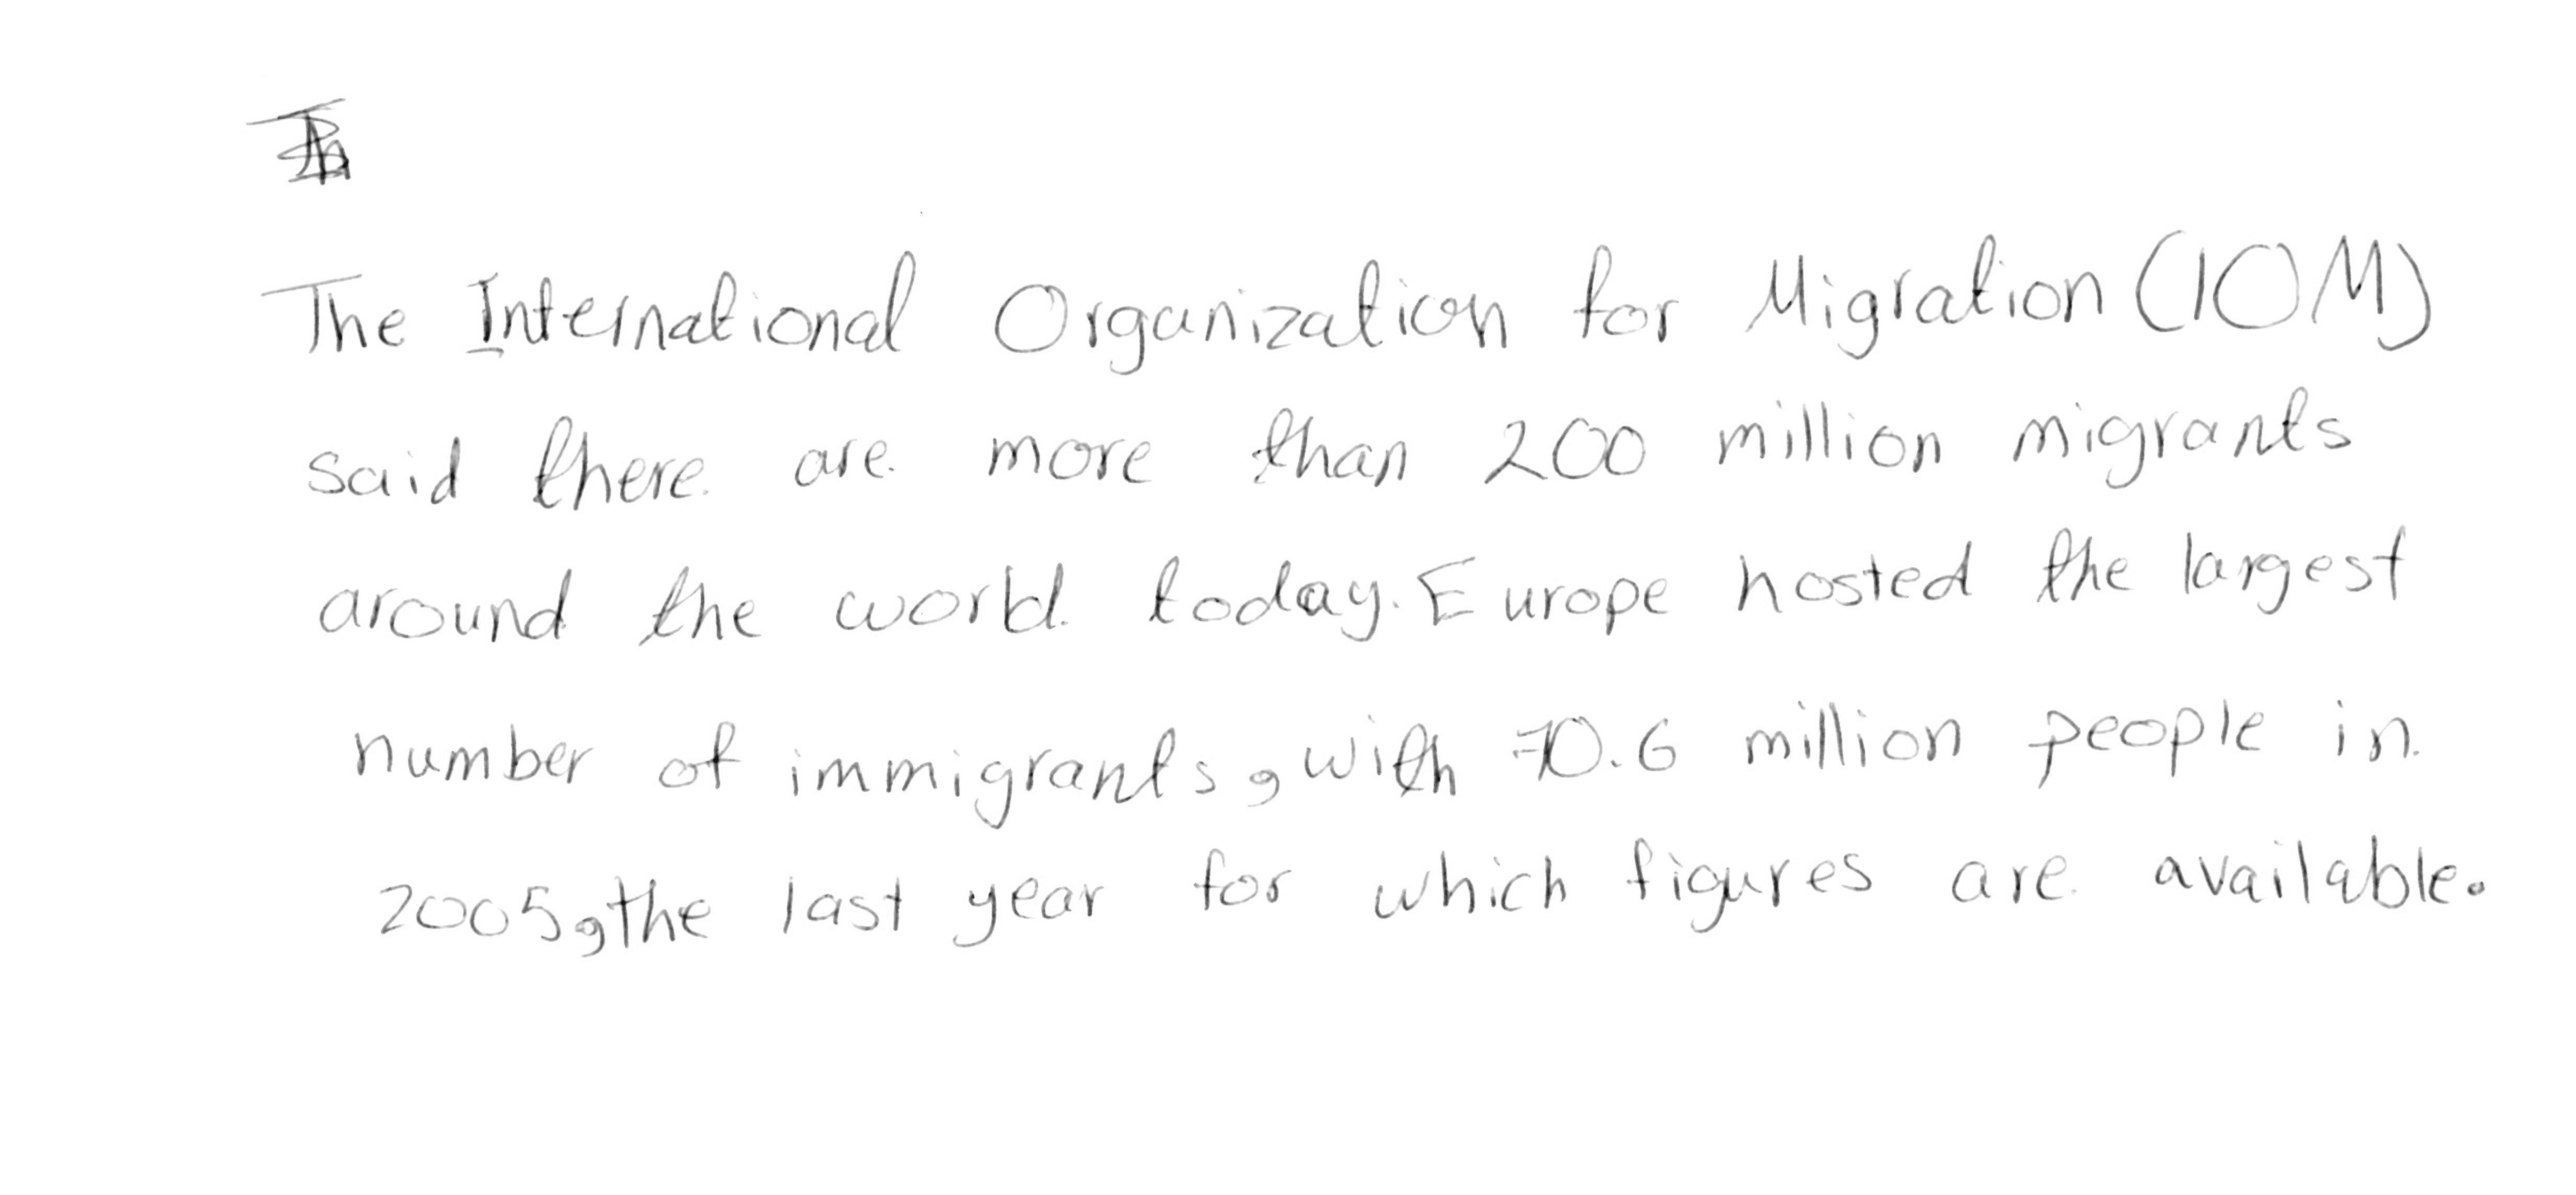 The International Organization for Migration (IOM)
said there are more than 200 million migrants
around the world today. Europe hosted the largest
number of immigrants, with 70.6 million people in
2005, the last year for which figures are available.